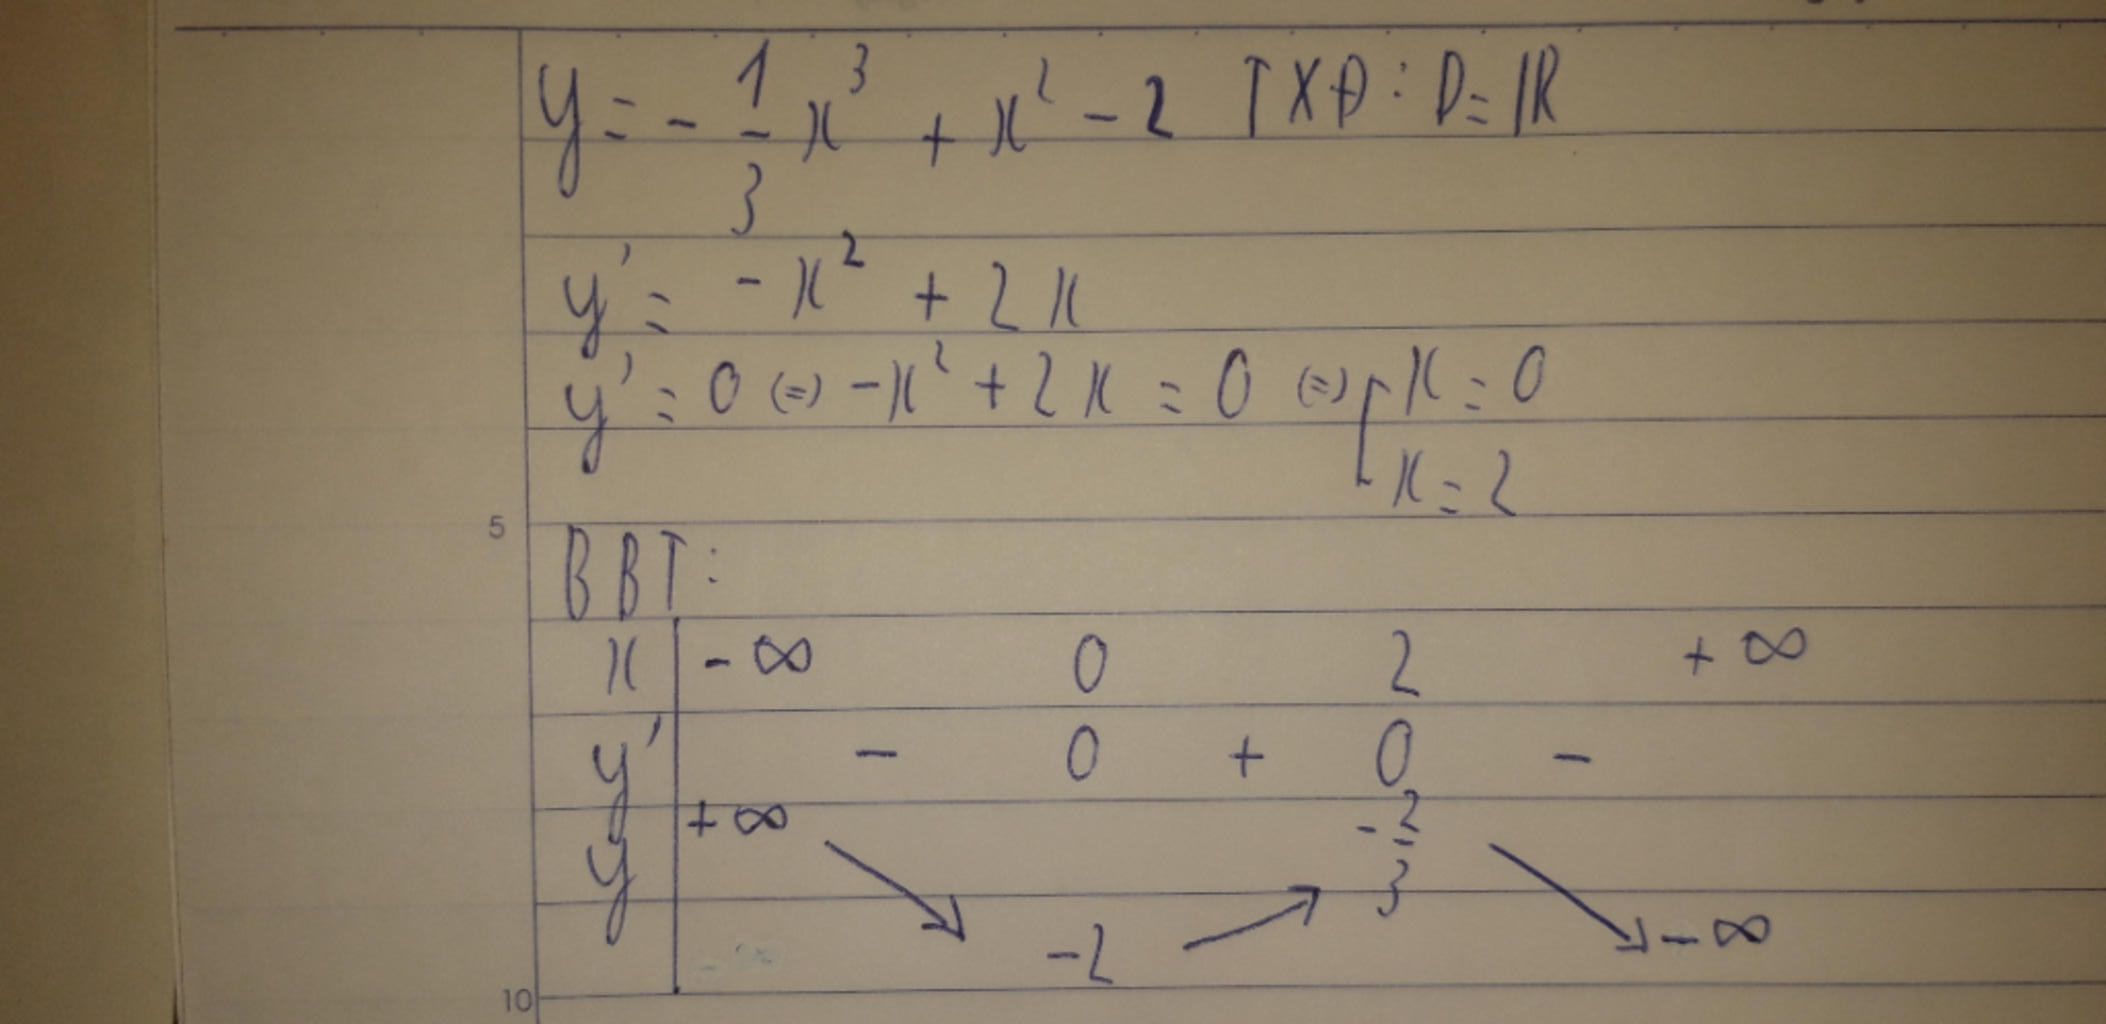 y = - 1/3 x³ + x² - 2 TXĐ : D = ℝ
y' = -x² + 2x
y' = 0 (=) -x² + 2x = 0 (=) [ x = 0
x = 2
5
BBT :
x | -∞ 0 2 +∞
y' | - 0 + 0 -
y | +∞ ↘ -2 ↗ -2/3 ↘ -∞
10